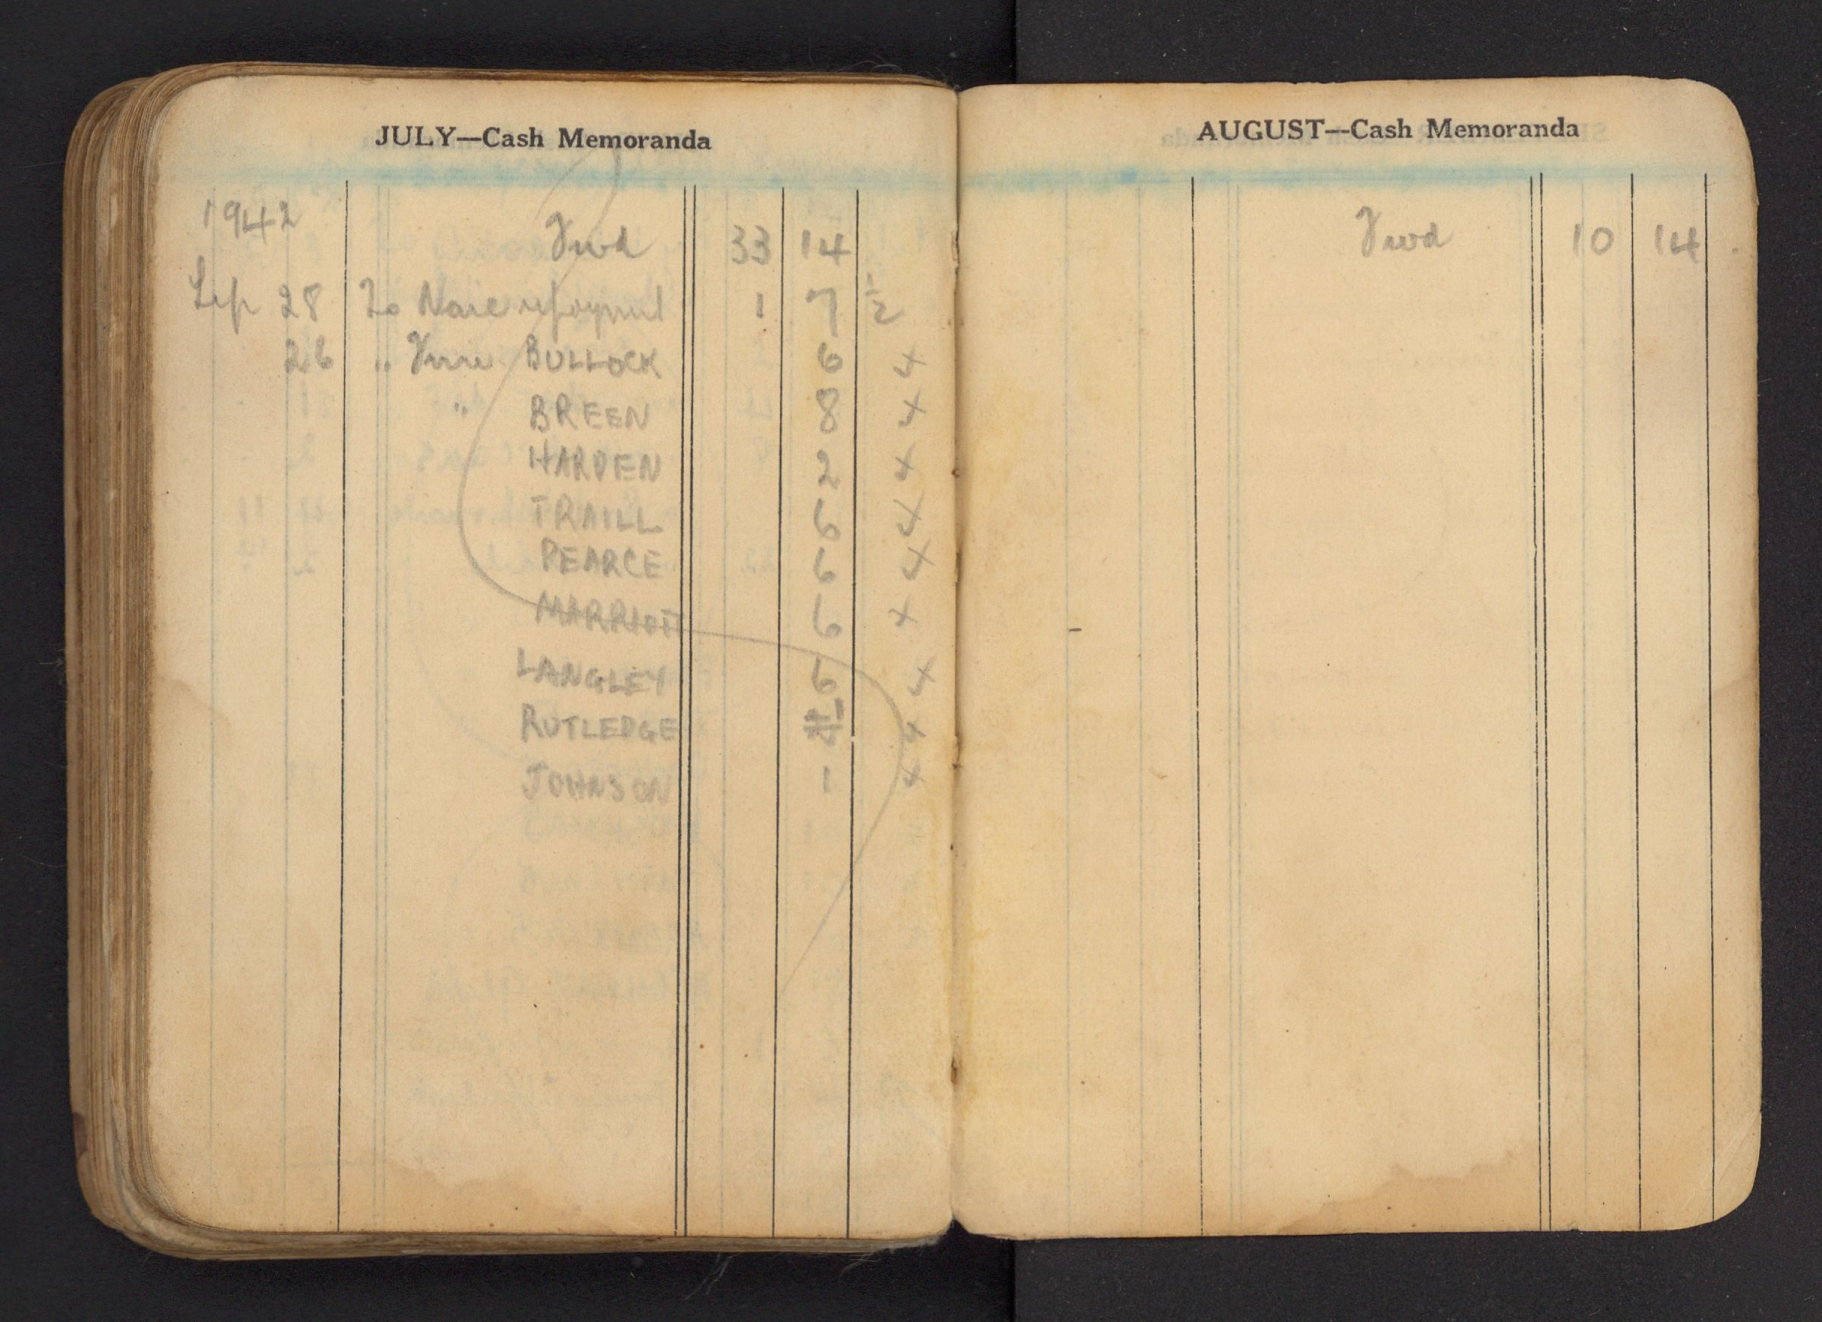 JULY—Cash Memoranda
1942
Fwd 33 14
Sep 28 To Naie 1 7 1/2
26 " BULLOCK 6 x
" BREEN 8 x
HARDEN 2 x
TRAILL 6 x
PEARCE 6 x
MARRIOTT 6 x
LANGLEY 6 x
RUTLEDGE x
JOHNSON 1 x
AUGUST—Cash Memoranda
Fwd 10 14